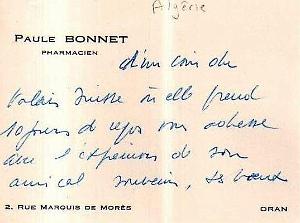 Algérie
PAULE BONNET
PHARMACIEN
d'un coin du
Valais Suisse où elle prend
10 jours de repos vous adresse
avec l'expression de son
amical souvenir, ses vœux
2, RUE MARQUIS DE MORÈS
ORAN